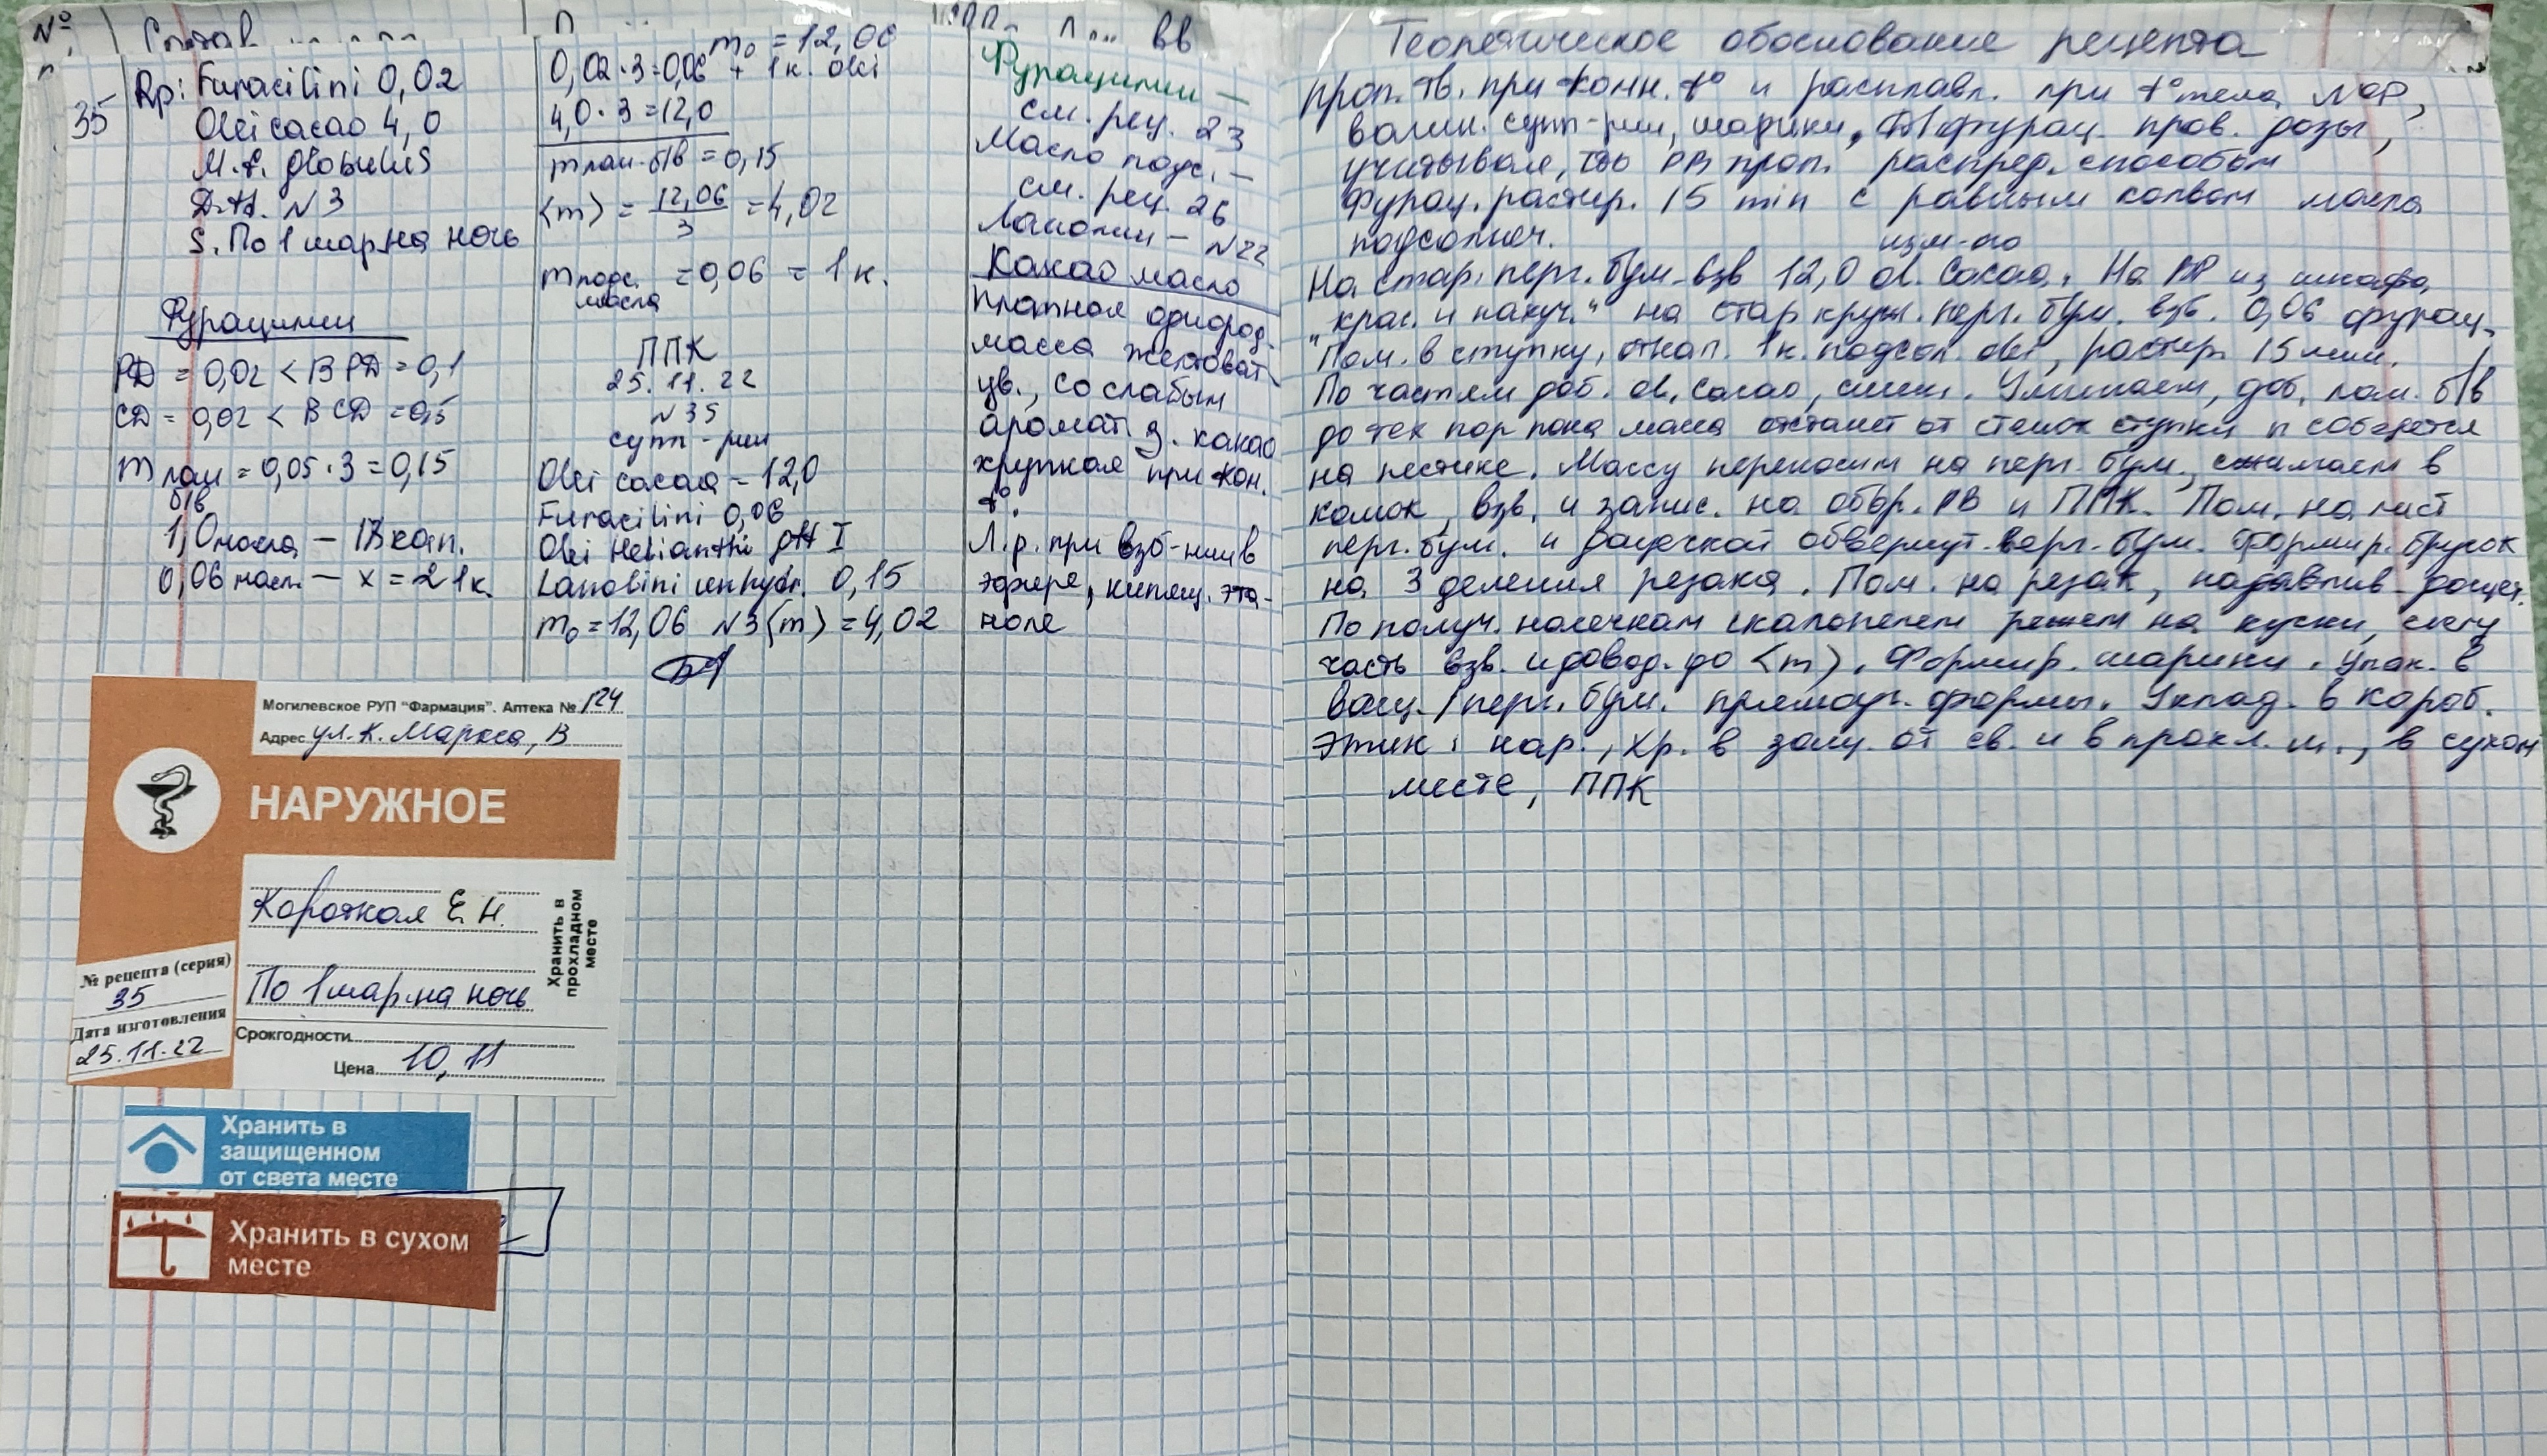 №
Состав
35
Rp: Furacilini 0,02
Olei cacao 4,0
M.f. globulus
D.t.d. N3
S. По 1 шар. на ночь
Фурацилин
РД = 0,02 < ВРД = 0,1
СД = 0,02 < ВСД = 0,5
m лан б/в = 0,05·3 = 0,15
1,0 масла – 17 кап.
0,06 масл. – x = 1 к.
m₀ = 12,06
0,02·3=0,06 + 1 к. olei
4,0·3=12,0
m лан. б/в = 0,15
⟨m⟩ = 12,06/3 = 4,02
m подс. масла = 0,06 = 1 к.
ППК
25.11.22
N35
супп-рии
Olei cacao – 12,0
Furacilini 0,06
Olei Helianthi gtt I
Lanolini unhydr. 0,15
m₀ = 12,06 N3 ⟨m⟩ = 4,02
Фурацилин –
см. рец. 23
Масло подс. –
см. рец. 26
Ланолин – N22
Какао масло
Плотная однород.
масса желтоват.
цв., со слабым
аромат. з. какао
хрупкая при кон.
t°.
Л.р. при взб-нии в
эфире, кипящ. эта-
ноле
Могилевское РУП "Фармация". Аптека № 124
Адрес ул. К. Маркса, В
НАРУЖНОЕ
Короткая Е.Н.
По 1 шар. на ночь
Хранить в
прохладном
месте
№ рецепта (серия)
35
Дата изготовления
25.11.22
Срок годности
Цена 10,11
Хранить в
защищенном
от света месте
Хранить в сухом
месте
Теоретическое обоснование рецепта
проп. тв. при комн. t° и расплавл. при t° тела,
супп-рии, шарики, фурац. пров. дозы,
учитывая, что РВ проп. распред. способом
Фурац. растир. 15 min с равным колвом масла
подсолнеч.
изм-ого
На стар. перг. бум. взв 12,0 ol. cacao. На РР из шкафа
"крас. и пахуч." на стар круж. перг. бум. взв. 0,06 фурац.
Пом. в ступку, откап. 1к. подсол. olei, растир. 15 мин.
По частям доб. ol. cacao, смеш. Уминаем, доб. лан. б/в
до тех пор пока масса отстанет от стенок ступки и соберется
на пестике. Массу переносим на перг. бум., сжимаем в
комок, взв. и запис. на обор. РВ и ППК. Пом. на лист
перг. бум. и дощечкой обвернут. перг. бум. формир. брусок
на 3 деления резака. Пом. на резак, надавлив. дощеч.
По получ. насечкам скальпелем режем на куски,
часть взв. и довод. до ⟨m⟩. Формир. шарики. Упак. в
вощ./перг. бум. прямоуг. формы. Уклад. в короб.
Этик: нар., хр. в защ. от св. и в прохл. м., в сухом
месте, ППК